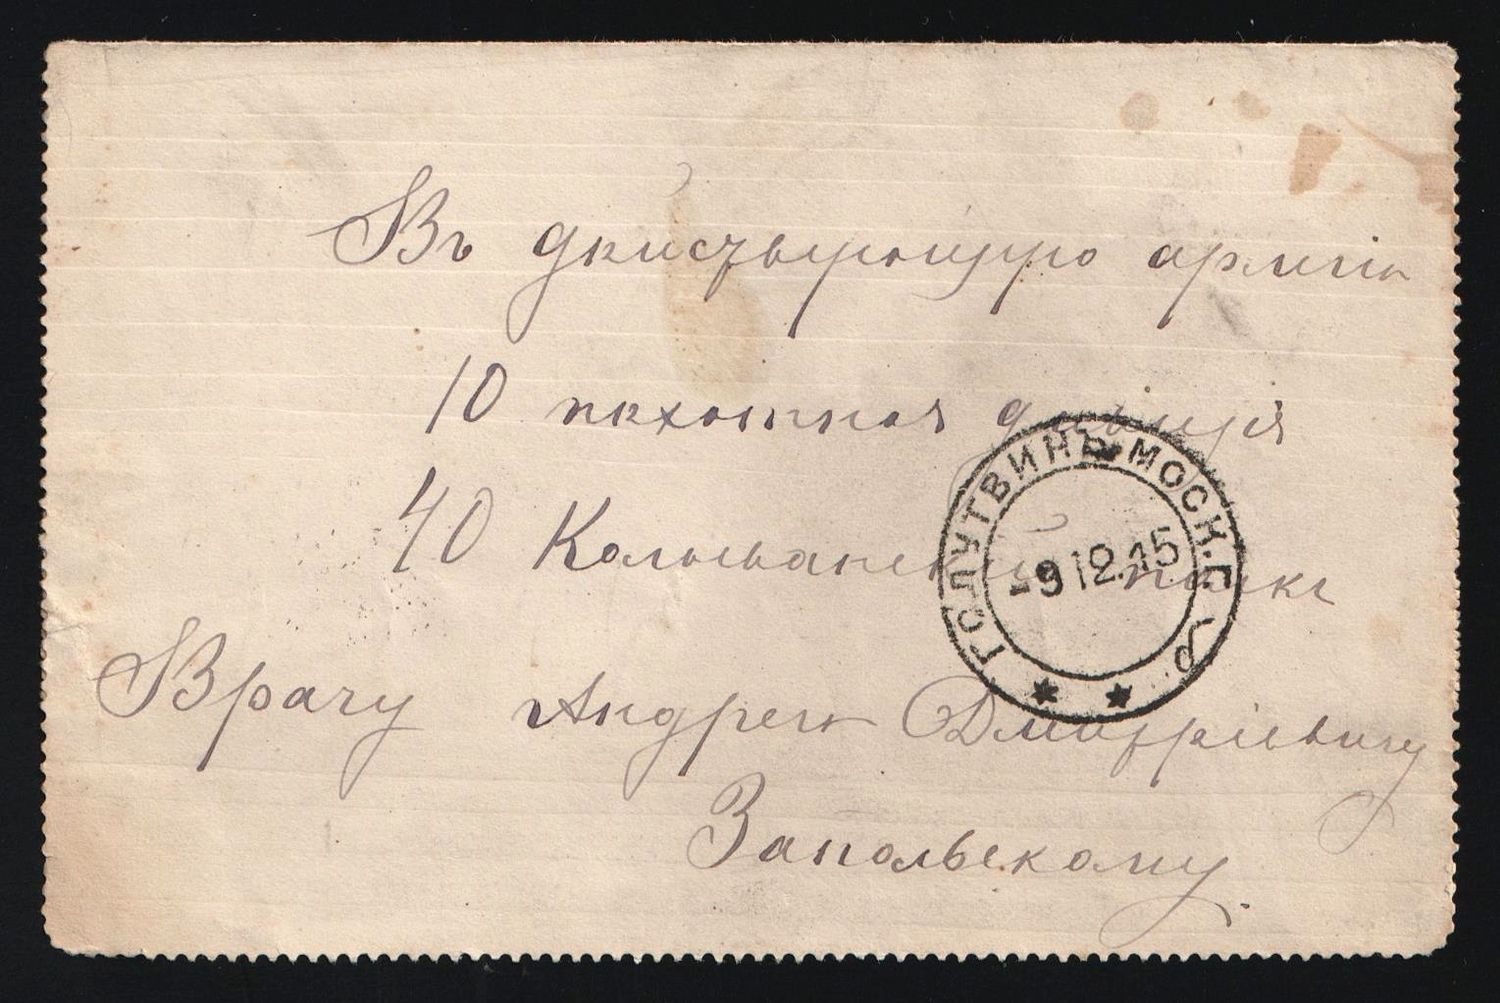 Въ действующую армію
10 пехотная дивизія
40 Колыванскій полкъ
ГОЛУТВИНЪ МОСК. Г.
-9 12.15
Врачу Андрею Дмитріевичу
Запольскому